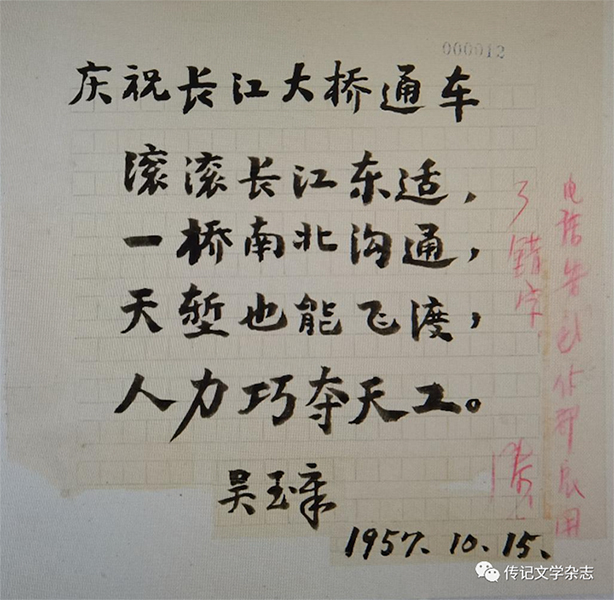 000012
庆祝长江大桥通车
滚滚长江东适，
一桥南北沟通，
天堑也能飞渡，
人力巧夺天工。
吴玉章
1957.10.15.
了错字
传记文学杂志